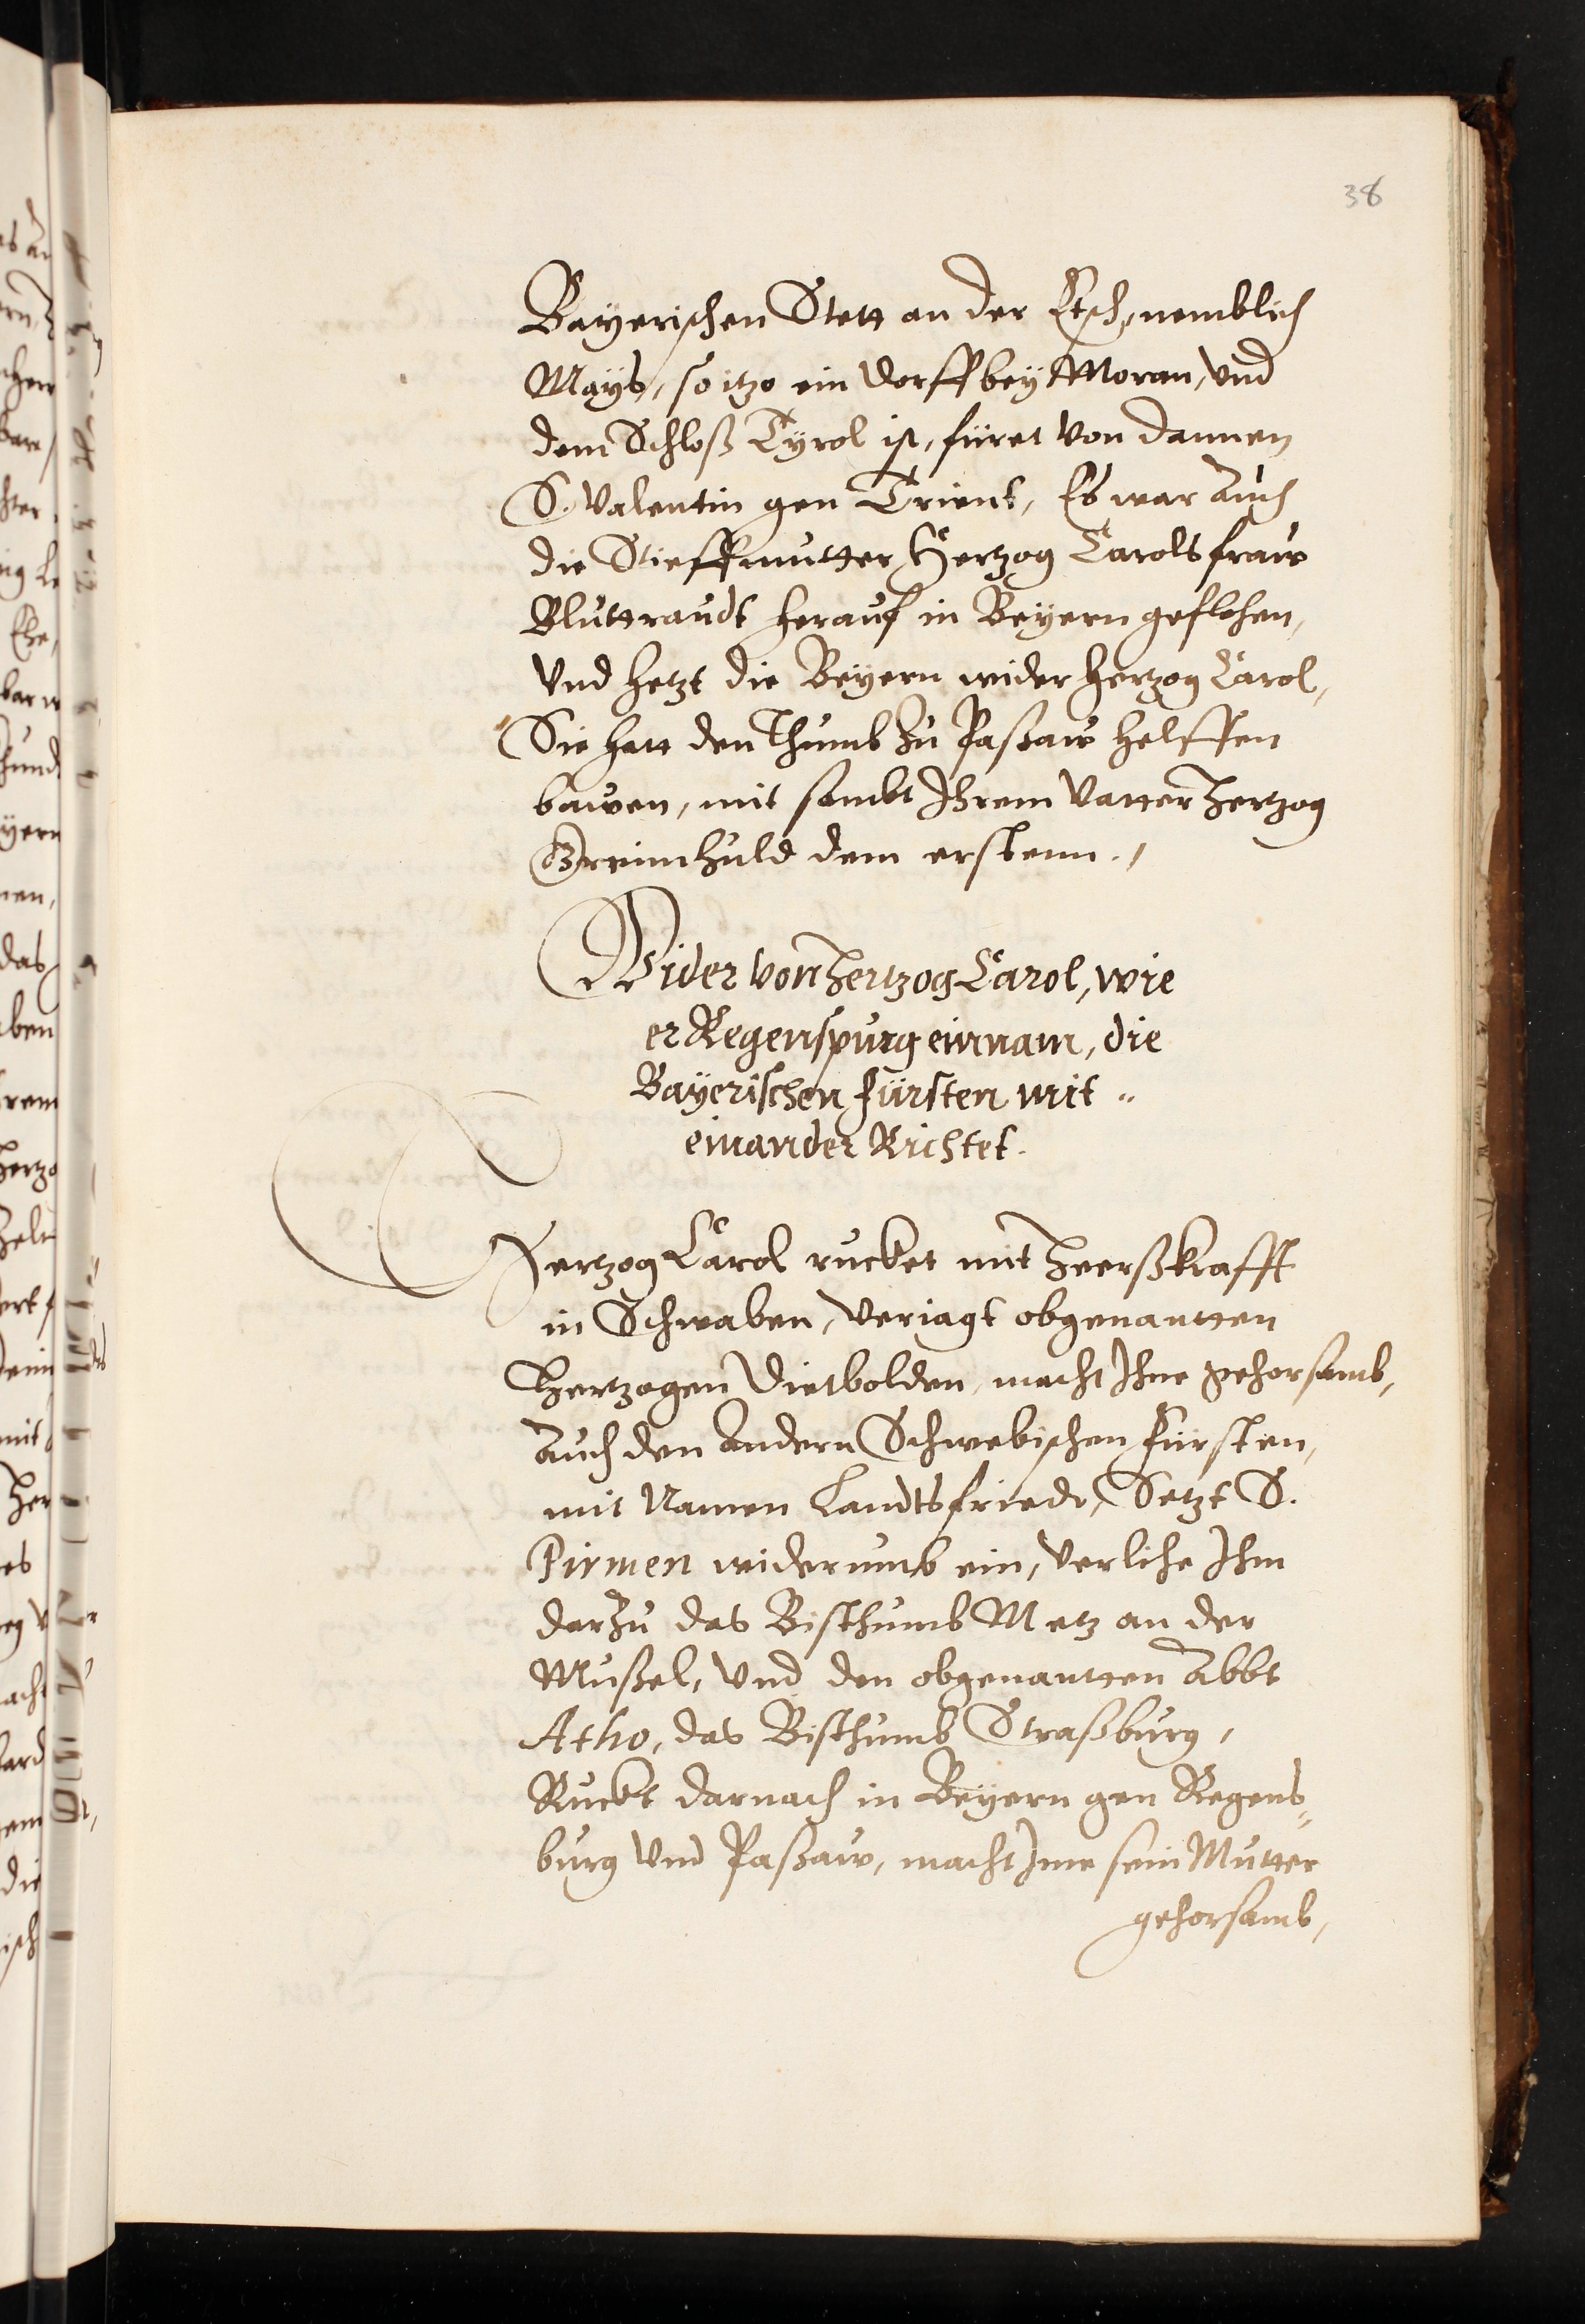 38
Bayerischen Stett an der Etsch, nemblich
Mays, so itzo ein dorff bey Moran, vnd
dem Schloß Tyrol ist, füret von dannen
S. Valentin gen Trient, Es war auch
die Stieffmutter Hertzog Carols fraw
Bluttraudt herauf in Beyern geflohen,
vnd hetzt die Beyern wider hertzog Carol,
Sie hatt den Thumb zu Paßaw helffen
bawen, mit sambt Ihrem vatter Hertzog
Greimhuld dem erstenn.,
Wider von Hertzog Carol, wie
er Regenspurg einnam, die
Bayerischen fürsten mit„
einander Richtet.
Hertzog Carol rucket mit Heerßkrafft
in Schwaben, veriagt obgenantten
Hertzogen Dietbolden, macht Ihme gehorsamb,
Auch den Andern Schwebischen fürsten,
mit Namen Landtsfriede, Setzt S.
Pirmen widerumb ein, verlihe Ihm
darzu das Bisthumb Metz an der
Mußel, vnd den obgenantten Abbt
Atho, das Bisthumb Straßburg,
Ruckt darnach in Beyern gen Regens„
burg vnd Paßaw, macht Jme sein Mutter
gehorsamb,